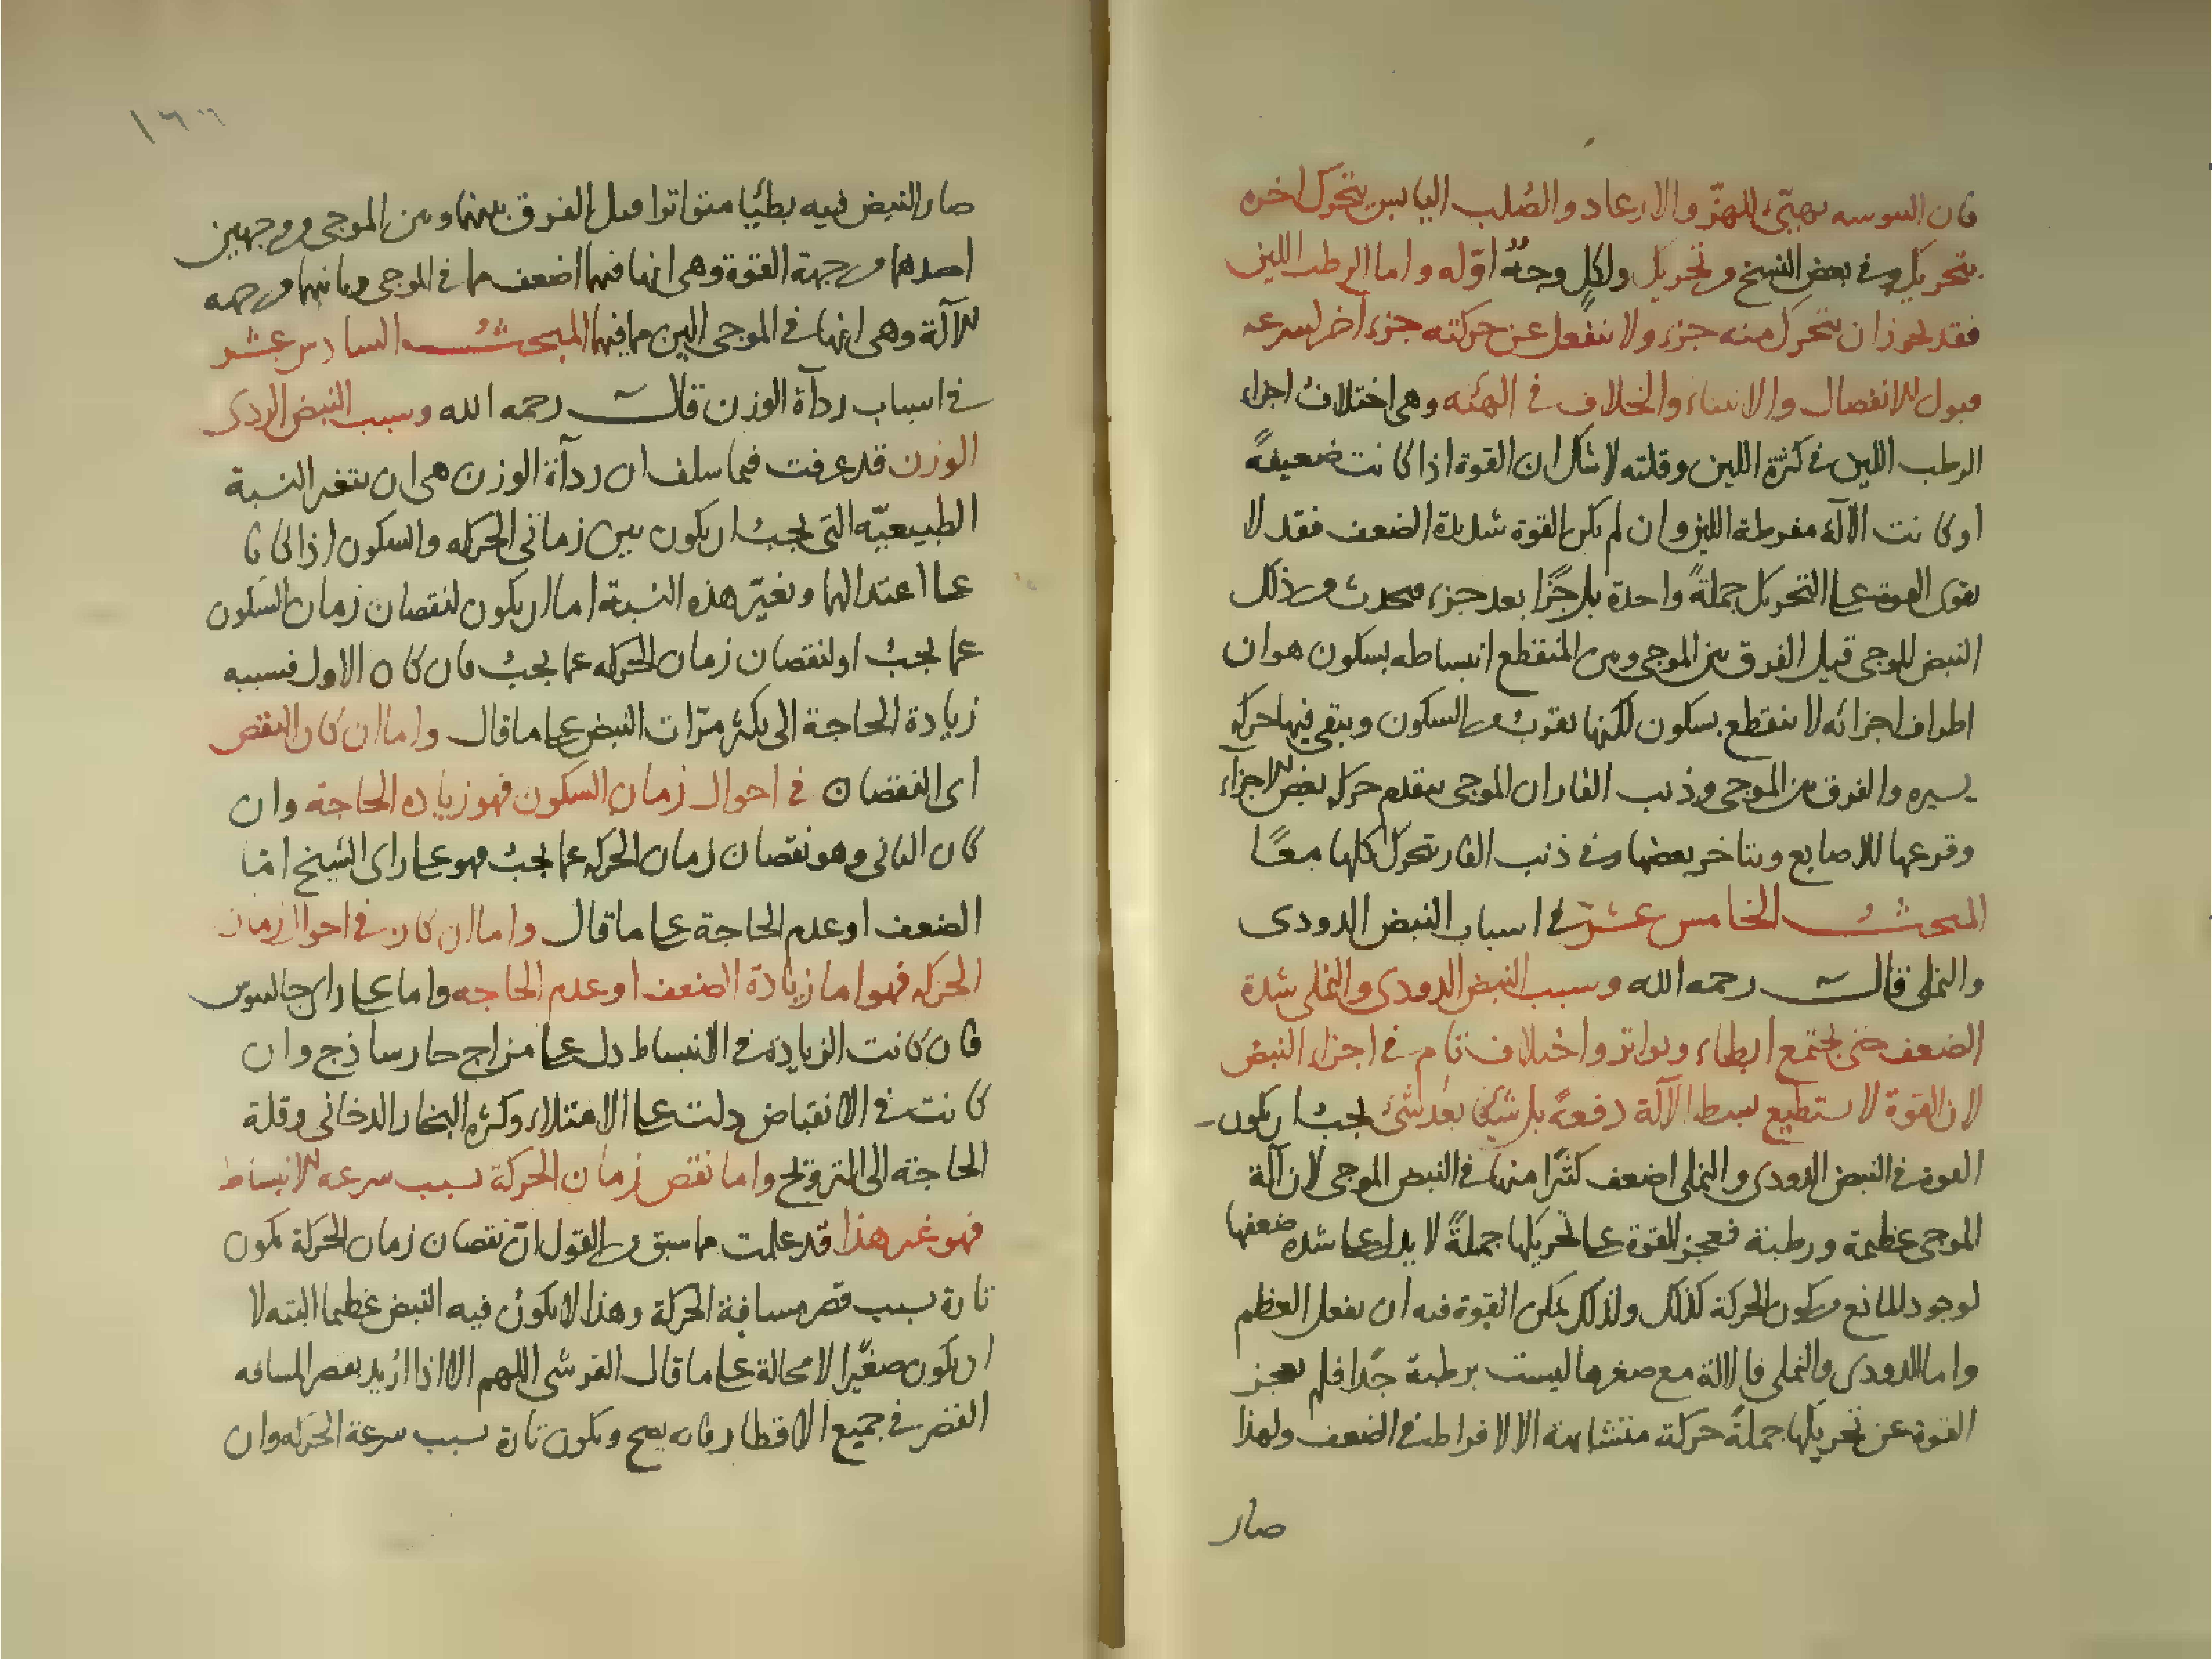 فان اليبوسه تهيّئ للهزّ والارعاد والصُلب اليابس يتحرك اخره
بتحريك وفي بعض النسخ من تحريك ولكلٍ وجهٌ اوّله واما الرطب اللين
فقد يجوز ان يتحرك منه جزء ولا ينفعل عن حركته جزء اخر لسرعه
قبول للانفصال والانثناء والخلاف في الهيئه وهي اختلاف اجزاء
الرطب اللين في كثرة اللين وقلته لا شك ان القوة اذا كانت ضعيفةً
او كانت الآلة مفرطة اللين وان لم تكن القوة شديدة الضعف فقد لا
تقوى القوة على التحريك جملةً واحدة بل جزًا بعد جزء فيحدث من ذلك
النبض الموجي قيل الفرق بين الموجي وبين المنقطع انبساطه بسكون هو ان
اطراف اجزائه لا ينقطع بسكون لكنها تقرب من السكون ويبقى فيها حركه
يسيره والفرق بين الموجي وذنب الفار ان الموجي يتقدم حركه بعض الاجزاء
وقرعها للاصابع ويتاخر بعضها وفي ذنب الفار يتحرك كلها معًا
المبحث الخامس عشر في اسباب النبض الدودي
والنملي قال رحمه الله وسبب النبض الدودي والنملي شدة
الضعف حتى يجتمع ابطاء وتواتر واختلاف تام في اجزاء النبض
لان القوة لا تستطيع بسط الآلة دفعةً بل شيئا بعد شئ يجب ان يكون
القوة في النبض الدودي والنملي اضعف كثيرًا منها في النبض الموجي لان آلة
الموجي عظيمة ورطبة فعجز القوة عن تحريكها جملةً لا يدل على شده ضعفها
لوجود المانع من كون الحركة كذلك ولذلك يمكن القوة فيه ان يفعل العظم
واما الدودي والنملي فالالة مع صغرها ليست برطبة جدًا فلم يعجز
القوة عن تحريكها جملةً حركة متشابهة الا لافراط في الضعف ولهذا
صار
١٦٦
صار النبض فيه بطيًا متواترا قيل الفرق بينهما وبين الموجي من وجهين
احدهما من جهة القوة وهي انها فيهما اضعف مما في الموجي وثانيهما من جهه
الآلة وهي انها في الموجي الين مما فيهما المبحث السادس عشر
في اسباب ردآة الوزن قال رحمه الله وسبب النبض الردي
الوزن قد عرفت فيما سلف ان ردآة الوزن هي ان يتغير النسبة
الطبيعيّه التي يجب ان يكون بين زماني الحركه والسكون اذا كانا
على اعتدالهما وتغيّر هذه النسبة اما ان يكون لنقصان زمان السكون
عما يجب او لنقصان زمان الحركه عما يجب فان كان الاول فسببه
زيادة الحاجة الى تكثر مرّات النبض على ما قال واما ان كان النقص
اى النقصان في احوال زمان السكون فهو زياده الحاجة وان
كان الثاني وهو نقصان زمان الحركه عما يجب فهو على راى الشيخ امّا
الضعف او عدم الحاجة على ما قال واما ان كان في احوال زمان
الحركه فهو اما زيادة الضعف او عدم الحاجه واما على راى جالينوس
فان كانت الزيادة في الانبساط دل على مزاج حار ساذج وان
كانت في الانقباض دلت على الامتلاء وكثره البخار الدخاني وقلة
الحاجة الى الترويح واما نقص زمان الحركة بسبب سرعه الانبساط
فهو غير هذا قد علمت مما سبق من القول انّ نقصان زمان الحركة يكون
تارة بسبب قصر مسافة الحركة وهذا لا يكون فيه النبض عظيما البته لا
ان يكون صغيًرا لا محالة على ما قال القرشي اللهم الا اذا اريد بقصر المسافه
القصر في جميع الاقطار فانه يصح ويكون تارة بسبب سرعة الحركه وان